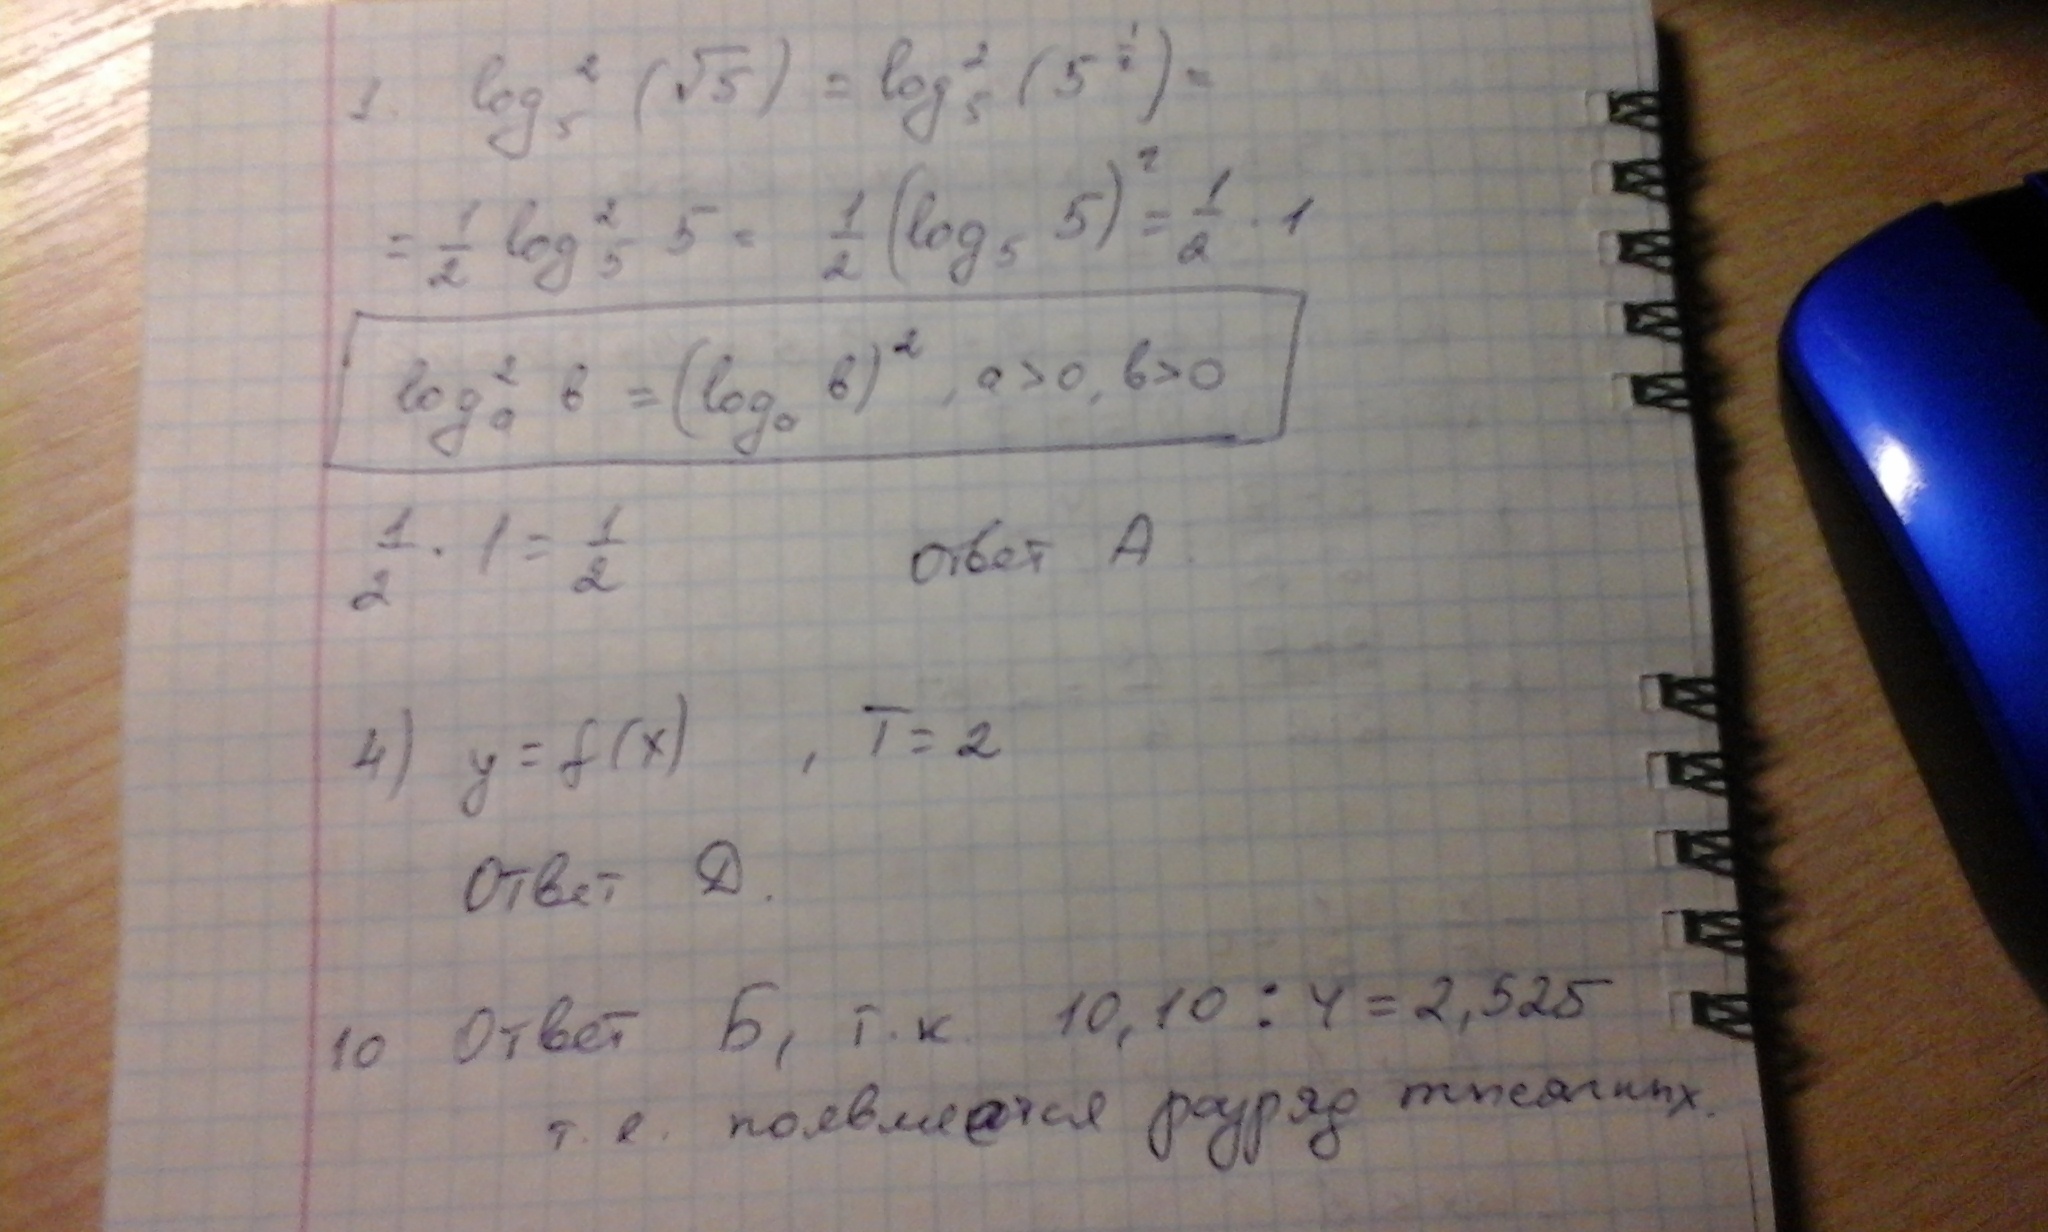 1. log₅² (√5) = log₅² (5^½) =
= 1/2 log₅² 5 = 1/2 (log₅ 5)² = 1/2 · 1
logₐ² b = (logₐ b)², a>0, b>0
1/2 · 1 = 1/2 ответ А.
4) y = f(x) , T = 2
Ответ Д.
10 Ответ Б, т.к. 10,10 : 4 = 2,525
т.е. появляется разряд тысячных.